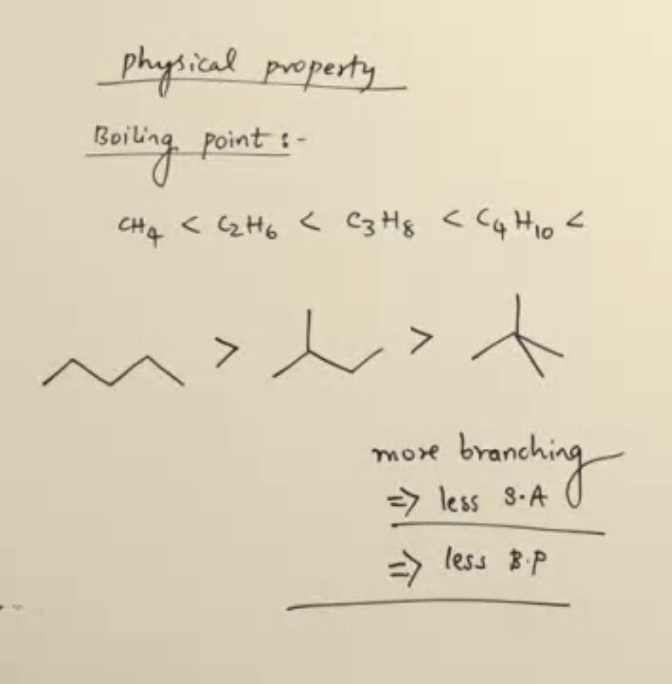 physical property
Boiling point :-
CH4 < C2H6 < C3H8 < C4H10 <
> >
more branching
=> less S.A
=> less B.P